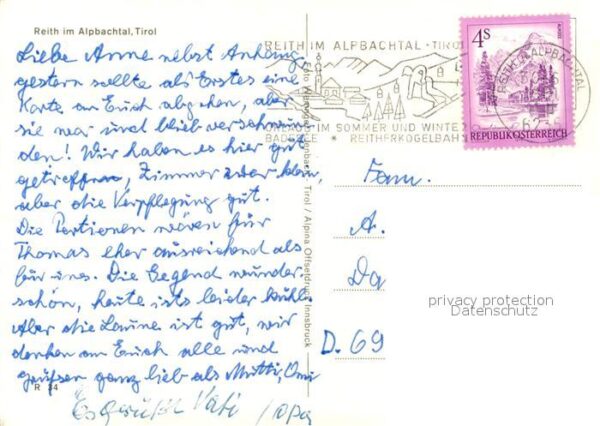 Reith im Alpbachtal, Tirol
Liebe Anne nebst Anhang
gestern sollte als Erstes eine
Karte an Euch abgehen, aber
sie war und blieb verschwun
den! Wir haben es hier gut
getroffen, Zimmer zwar klein,
aber die Verpflegung gut.
Die Portionen wären für
Thomas eher ausreichend als
für uns. Die Gegend wunder
schön, heute ists leider kühl.
Aber die Laune ist gut, wir
denken an Euch alle und
grüßen ganz lieb als Mutti, Omi
Es grüßt Vati / Opa
R 34
Tirol / Alpina Offsetdruck Innsbruck
REITH IM ALPBACHTAL · TIROL
URLAUB IM SOMMER UND WINTER
BADESEE * REITHERKOGELBAHN
REITH IM ALPBACHTAL
62
4S
REPUBLIK ÖSTERREICH
Fam.
A.
Da
D. 69
privacy protection
Datenschutz